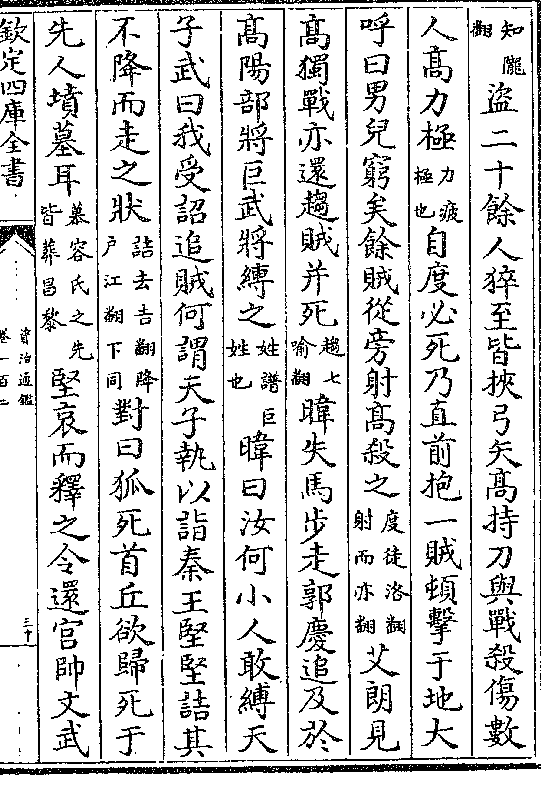 知隴翻盜二十餘人猝至皆挾弓矢髙持刀與戰殺傷數
人髙力極力疲極也自度必死乃直前抱一賊頓擊于地大
呼曰男兒窮矣餘賊從旁射髙殺之度徒洛翻射而亦翻艾朗見
髙獨戰亦還趨賊并死趨七喻翻暐失馬步走郭慶追及於
髙陽部將巨武將縛之姓譜巨姓也暐曰汝何小人敢縛天
子武曰我受詔追賊何謂天子執以詣秦王堅堅詰其
不降而走之狀詰去吉翻降户江翻下同對曰狐死首丘欲歸死于
先人墳墓耳慕容氏之先皆葬昌黎堅哀而釋之令還宫帥文武
欽定四庫全書
資治通鑑
卷一百二
三十